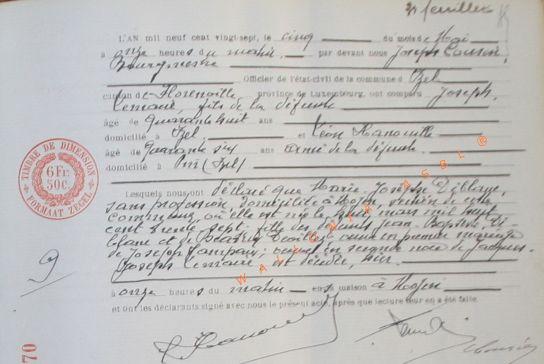 2 feuillets
L'AN mil neuf cent vingt-sept, le cinq du mois de Mai
à onze heures du matin, par devant nous Joseph
Bourgmestre
Officier de l'état-civil de la commune d'Izel
canton de Florenville province de Luxembourg, ont comparu Joseph
Lemaire, fils de la défunte
âgé de quarante huit ans
domicilié à Izel et Léon Hanouille
âgé de quarante six ans ami de la défunte
domicilié à Pin (Izel)
Lesquels nous ont déclaré que Marie Joseph
sans profession, domiciliée à Moyen, section de cette
commune, où elle est née le huit mars mil huit
cent trente sept; fille des défunts Jean Baptiste
et de veuve en premier mariage
de Joseph en seconde noce de Jacques
Joseph Lemaire est décédée, hier
à onze heures du matin en sa maison à Moyen
et ont les déclarants signé avec nous le présent acte, après que lecture leur en a été faite.
TIMBRE DE DIMENSION
6 Fr. 50c.
FORMAAT ZEGEL
9
70
L Hanouille